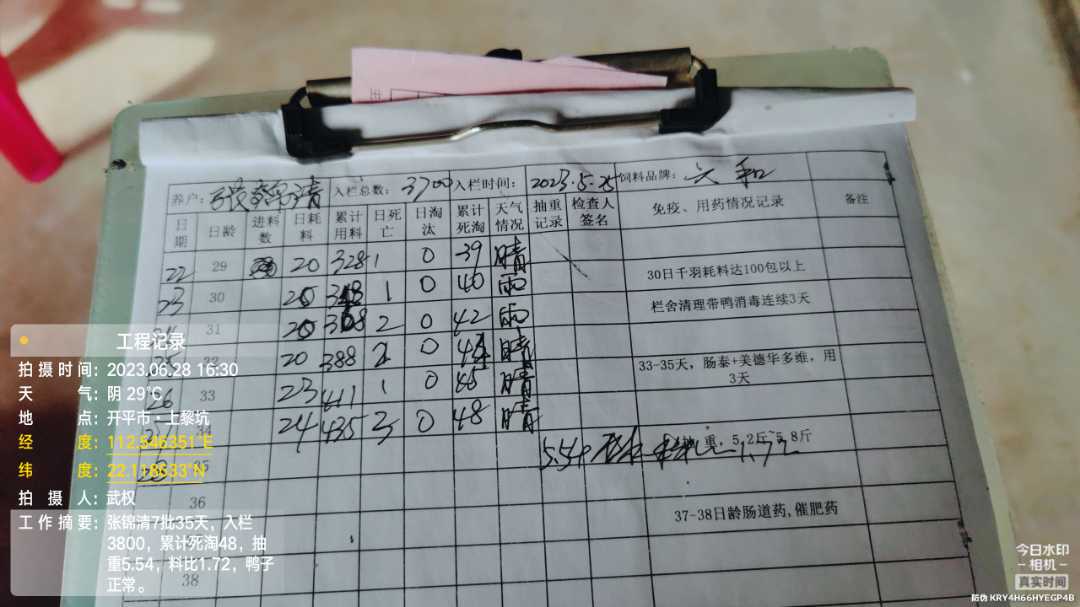 养户: 张锦清 入栏总数: 3700 入栏时间: 2023.5.25 饲料品牌: 六和
日期 日龄 进料数 日耗料 累计用料 日死亡 日淘汰 累计死淘 天气情况 抽重记录 检查人签名 免疫、用药情况记录 备注
22 29 20 328 1 0 39 晴
23 30 20 348 1 0 40 雨 30日千羽耗料达100包以上
31 20 368 2 0 42 雨 栏舍清理带鸭消毒连续3天
20 388 2 0 44 晴
26 33 23 411 1 0 45 晴 33-35天，肠泰+美德华多维，用3天
24 435 3 0 48 晴
28 35 5.54 重，5.2斤~5.8斤
36
37-38日龄肠道药,催肥药
38
工程记录
拍摄时间: 2023.06.28 16:30
天 气: 阴 29℃
地 点: 开平市·上黎坑
经 度: 112.546351°E
纬 度: 22.118633°N
拍 摄 人: 武权
工作摘要: 张锦清7批35天，入栏
3800，累计死淘48，抽
重5.54，料比1.72，鸭子
正常。
今日水印
-相机-
真实时间
防伪 KRY4H66HYEGP4B